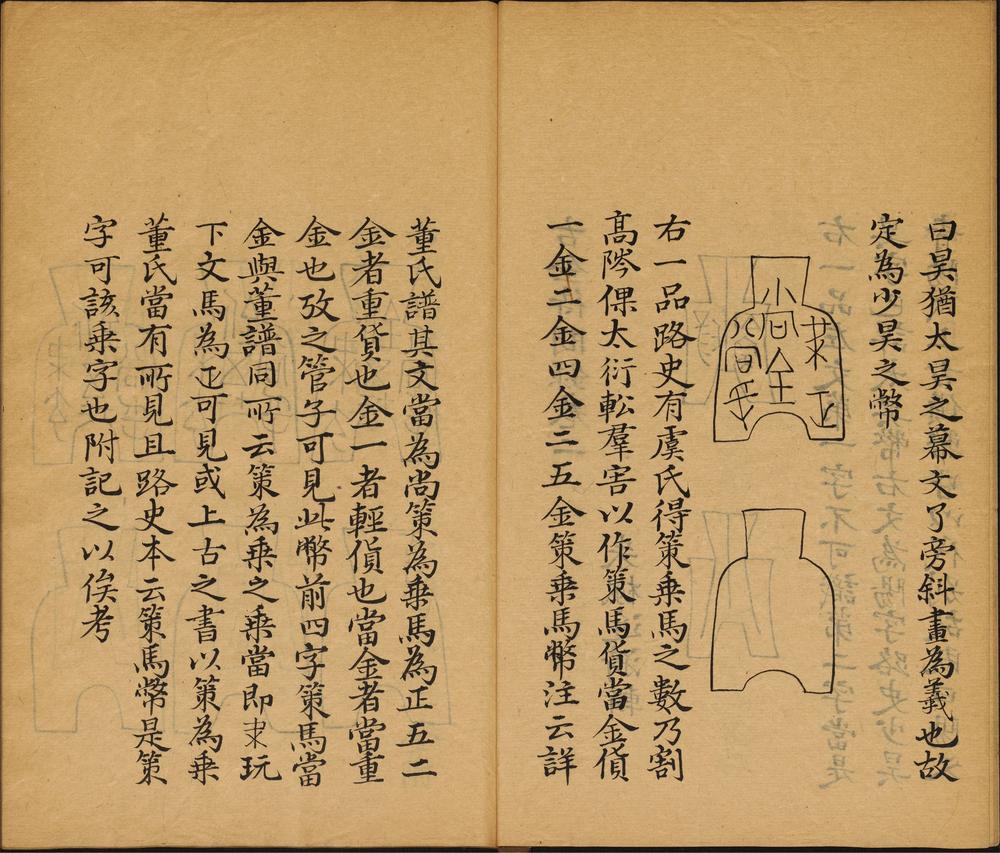 曰昊猶太昊之幕文了旁斜畫為義也故
定為少昊之幣
右一品路史有虞氏得策乗馬之數乃割
髙陊倮太衍䡆羣害以作策馬貨當金貨
一金二金四金二五金策乗馬幣注云詳
董氏譜其文當為尚策為乗馬為正五二
金者重貨也金一者輕貨也當金者當重
金也攷之管子可見此幣前四字策馬當
金與董譜同所云策為乗之乗當即玩
下文馬為正可見或上古之書以策為乗
董氏當有所見且路史本云策馬幣是策
字可該乗字也附記之以俟考